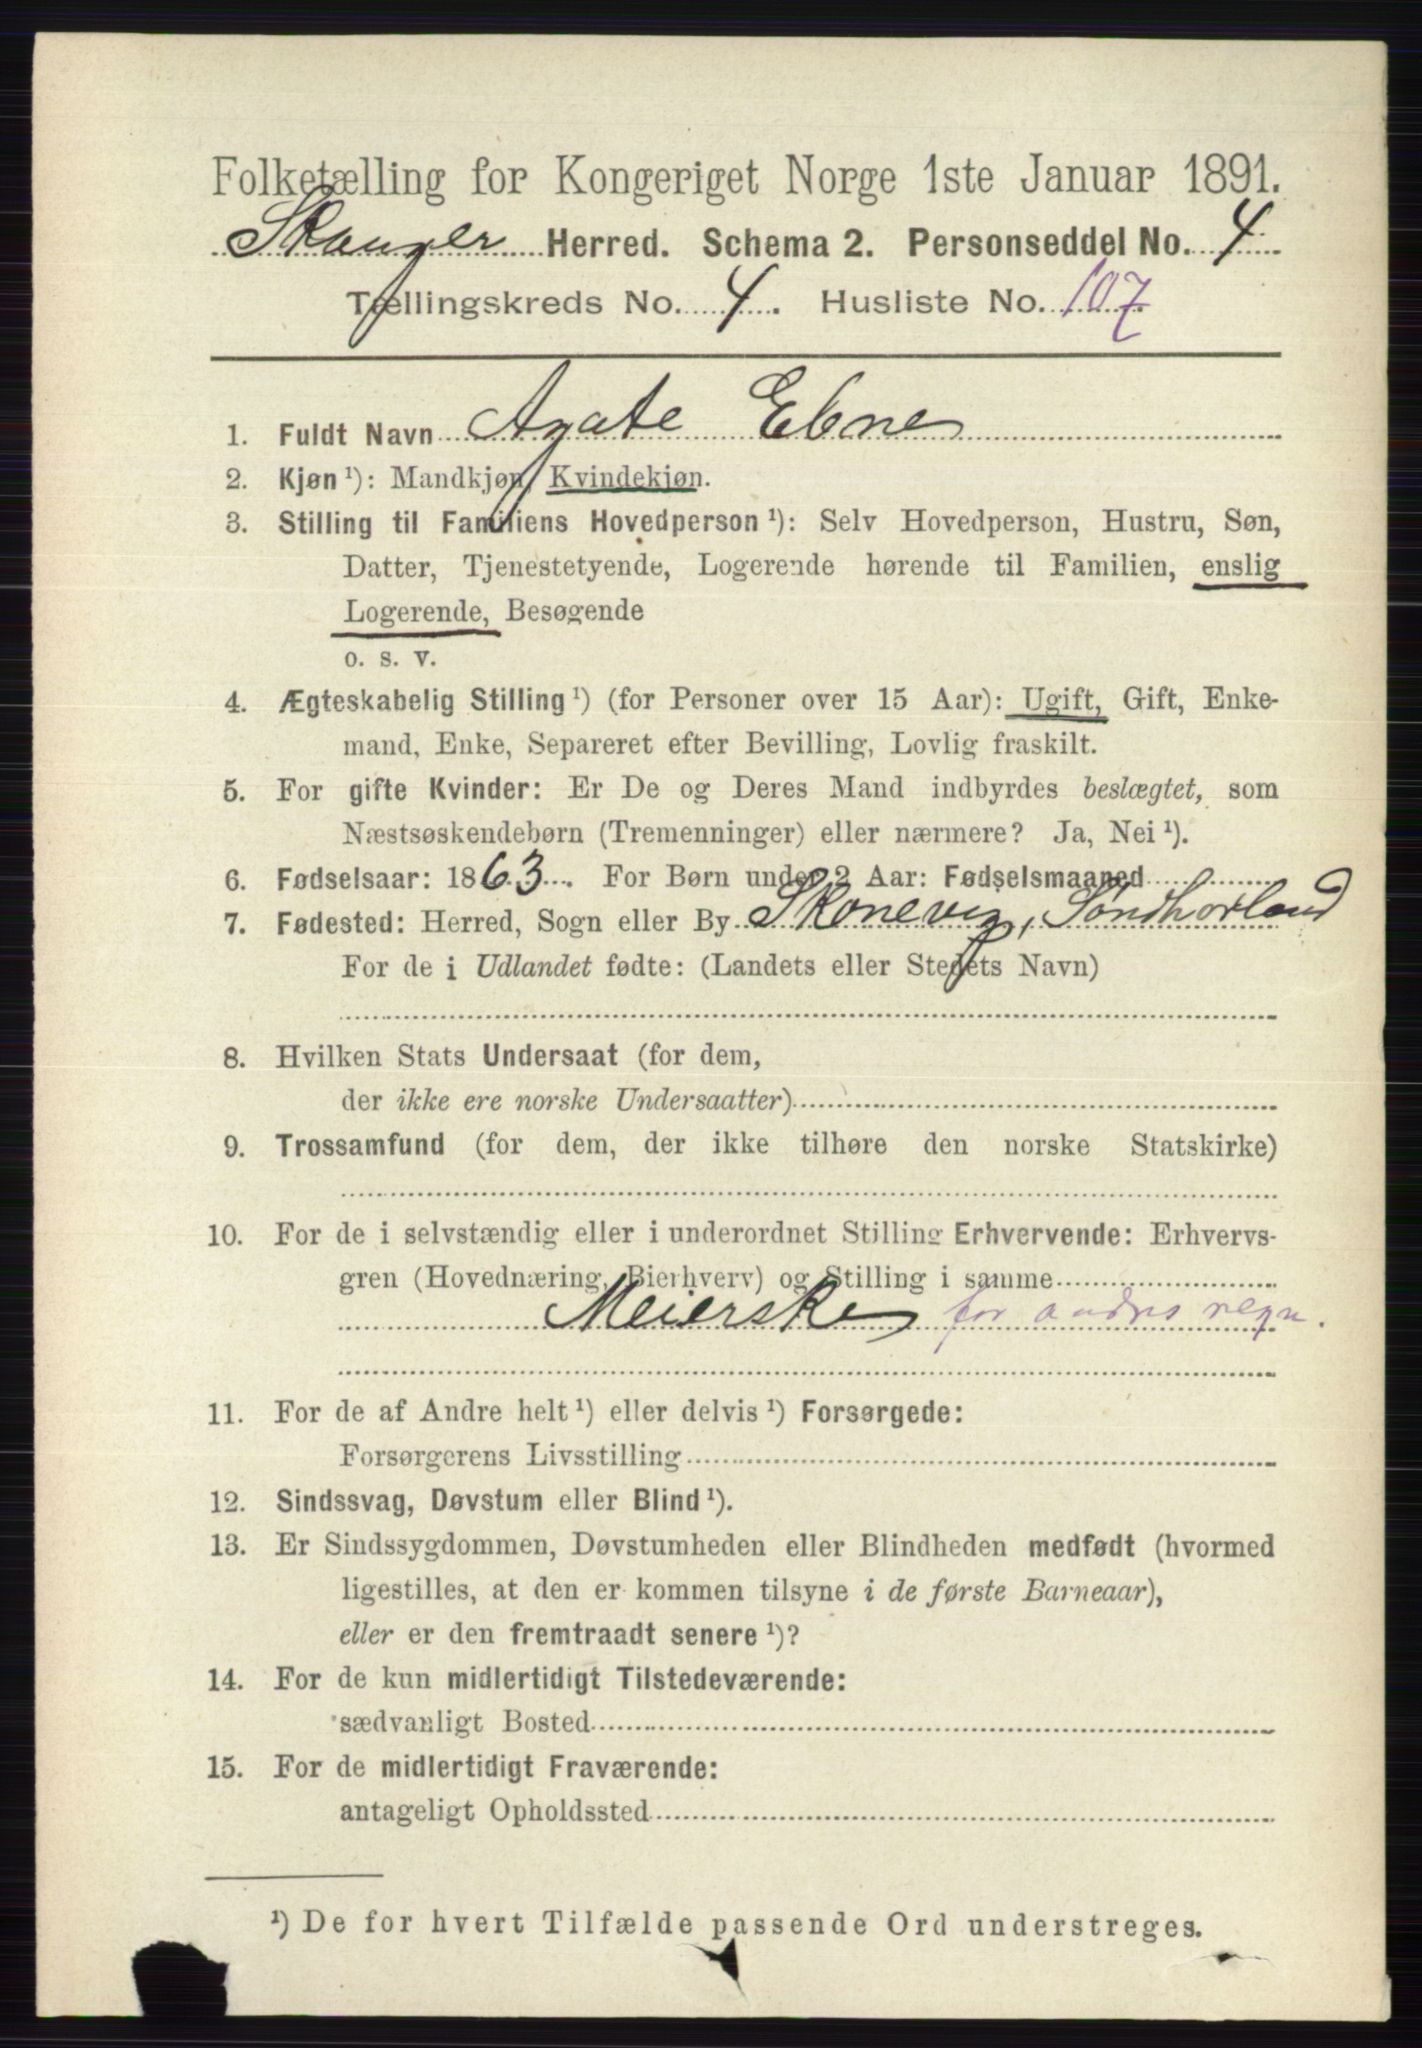 Folketælling for Kongeriget Norge 1ste Januar 1891.
Skanger Herred. Schema 2. Personseddel No. 4
Tællingskreds No. 4. Husliste No. 107
1. Fuldt Navn Agate Ebne
2. Kjøn ¹): Mandkjøn, Kvindekjøn.
3. Stilling til Familiens Hovedperson ¹): Selv Hovedperson, Hustru, Søn,
Datter, Tjenestetyende, Logerende hørende til Familien, enslig
Logerende, Besøgende
o. s. v.
4. Ægteskabelig Stilling ¹) (for Personer over 15 Aar): Ugift, Gift, Enke-
mand, Enke, Separeret efter Bevilling, Lovlig fraskilt.
5. For gifte Kvinder: Er De og Deres Mand indbyrdes beslægtet, som
Næstsøskendebørn (Tremenninger) eller nærmere? Ja, Nei ¹).
6. Fødselsaar: 1863. For Børn under 2 Aar: Fødselsmaaned
7. Fødested: Herred, Sogn eller By Skonevig, Söndhorland
For de i Udlandet fødte: (Landets eller Stedets Navn)
8. Hvilken Stats Undersaat (for dem,
der ikke ere norske Undersaatter)
9. Trossamfund (for dem, der ikke tilhøre den norske Statskirke)
10. For de i selvstændig eller i underordnet Stilling Erhvervende: Erhvervs-
gren (Hovednæring, Bierhverv) og Stilling i samme
Meierske for andres regn.
11. For de af Andre helt ¹) eller delvis ¹) Forsørgede:
Forsørgerens Livsstilling
12. Sindssvag, Døvstum eller Blind ¹).
13. Er Sindssygdommen, Døvstumheden eller Blindheden medfødt (hvormed
ligestilles, at den er kommen tilsyne i de første Barneaar),
eller er den fremtraadt senere ¹)?
14. For de kun midlertidigt Tilstedeværende:
sædvanligt Bosted
15. For de midlertidigt Fraværende:
antageligt Opholdssted
¹) De for hvert Tilfælde passende Ord understreges.